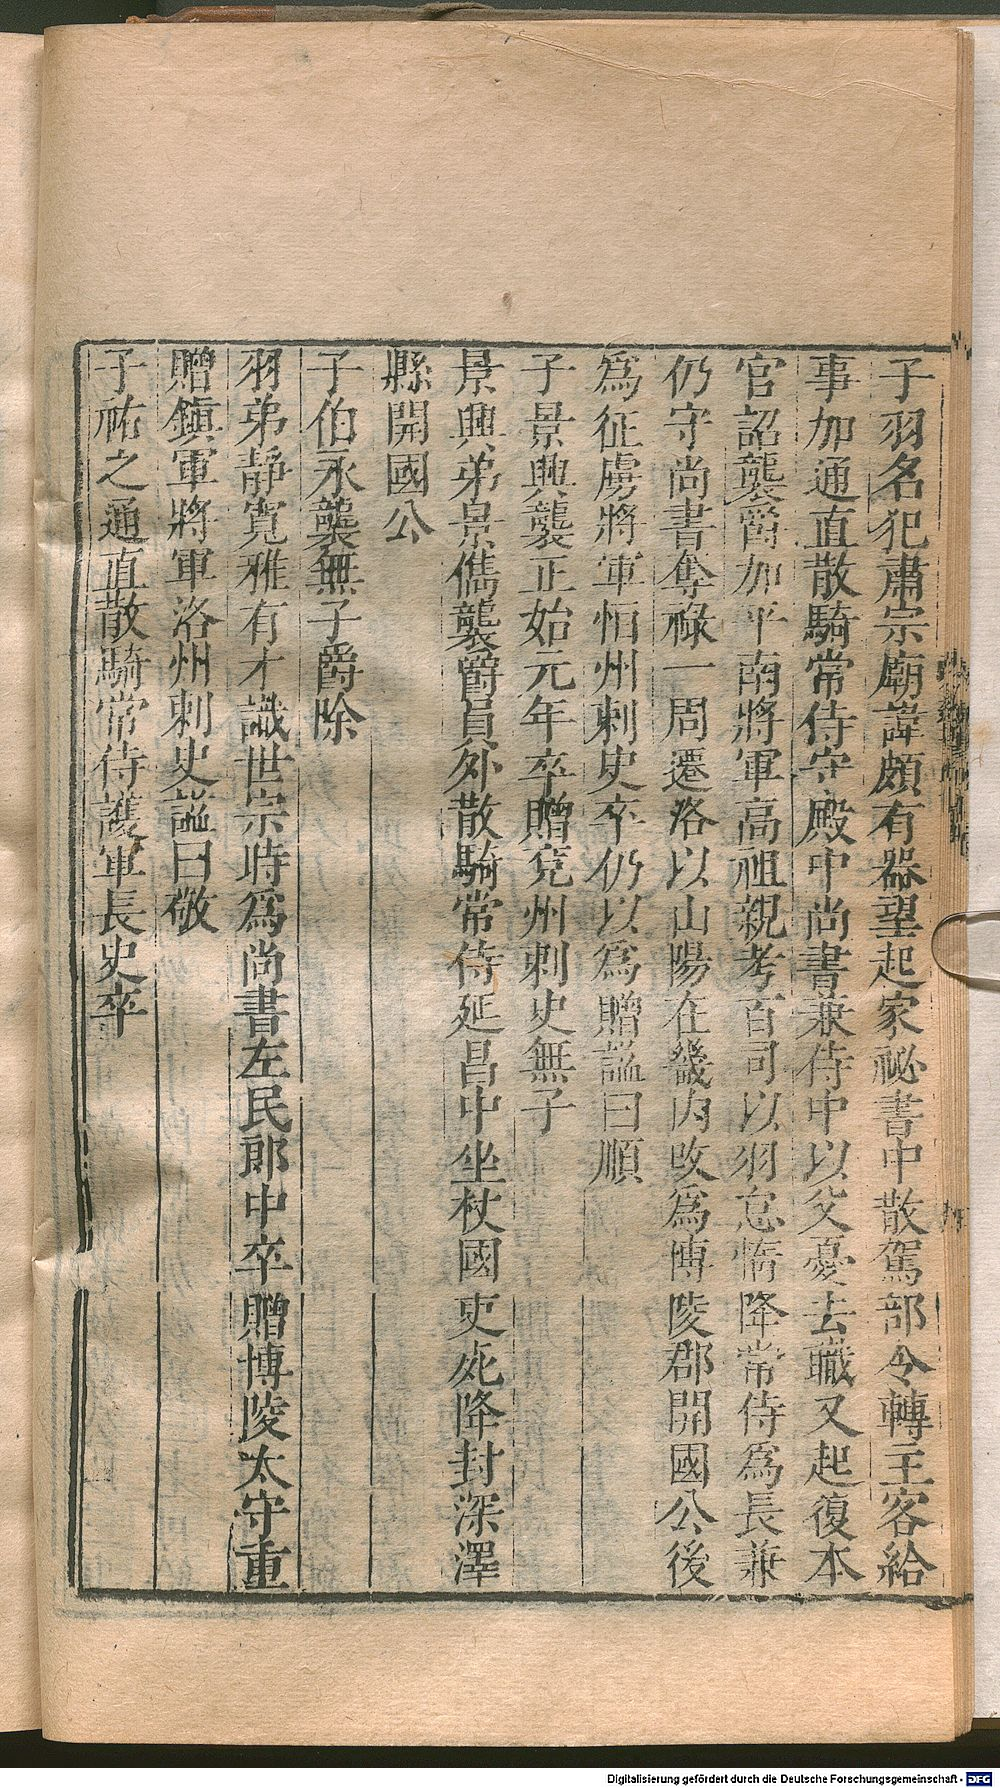 子羽名犯肅宗廟諱頗有器望起家祕書中散駕部令轉主客給
事加通直散騎常侍守殿中尚書兼侍中以父憂去職又起復本
官詔襲爵加平南將軍高祖親考百司以羽怠惰降常侍為長兼
仍守尚書奪祿一周遷洛以山陽在畿內改為博陵郡開國公後
為征虜將軍恒州刺史卒仍以為贈諡曰順
子景興襲正始元年卒贈兗州刺史無子
景興弟景儁襲爵員外散騎常侍延昌中坐杖國吏死降封深澤
縣開國公
子伯永襲無子爵除
羽弟靜寬雅有才識世宗時為尚書左民郎中卒贈博陵太守重
贈鎮軍將軍洛州刺史諡曰敬
子祐之通直散騎常侍護軍長史卒
Digitalisierung gefördert durch die Deutsche Forschungsgemeinschaft - DFG